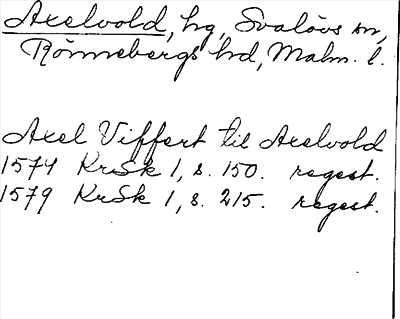 Axelvold, hg, Svalövs sn,
Rönnebergs hd, Malm. l.
Axel Viffert til Axelvold
1574 KrSk 1, s. 150. regest.
1579 KrSk 1, s. 215. regest.